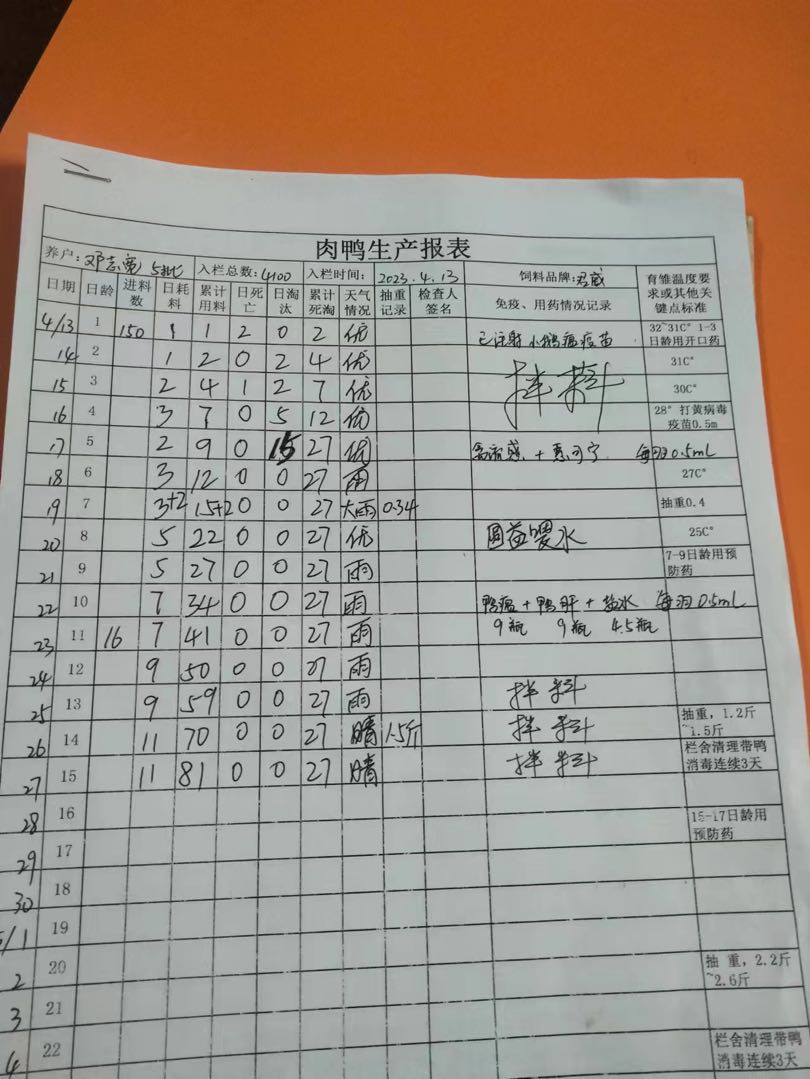 肉鸭生产报表
养户:邓志 5批 入栏总数:4100 入栏时间: 2023.4.13 饲料品牌:君威 育雏温度要求或其他关键点标准
日期 日龄 进料数 日耗料 累计用料 日死亡 日淘汰 累计死淘 天气情况 抽重记录 检查人签名 免疫、用药情况记录
4/13 1 150 1 1 2 0 2 优 已注射小鹅瘟疫苗 32~31C° 1-3日龄用开口药
14 2 1 2 0 2 4 优 31C°
15 3 2 4 1 2 7 优 拌料 30C°
16 4 3 7 0 5 12 优 28° 打黄病毒疫苗0.5m
17 5 2 9 0 15 27 优 + 每羽0.5mL
18 6 3 12 0 0 27 雨 27C°
19 7 3+2 15+2 0 0 27 大雨 0.34 抽重0.4
20 8 5 22 0 0 27 优 水 25C°
21 9 5 27 0 0 27 雨 7-9日龄用预防药
22 10 7 34 0 0 27 雨 鸭瘟 + 鸭肝 + 盐水 每羽0.5mL
23 11 16 7 41 0 0 27 雨 9瓶 9瓶 4.5瓶
24 12 9 50 0 0 27 雨
25 13 9 59 0 0 27 雨 拌料
26 14 11 70 0 0 27 晴 1.5斤 拌料 抽重，1.2斤~1.5斤
27 15 11 81 0 0 27 晴 拌料 栏舍清理带鸭消毒连续3天
28 16 15-17日龄用预防药
29 17
30 18
5/1 19
2 20 抽重，2.2斤~2.6斤
3 21
4 22 栏舍清理带鸭消毒连续3天